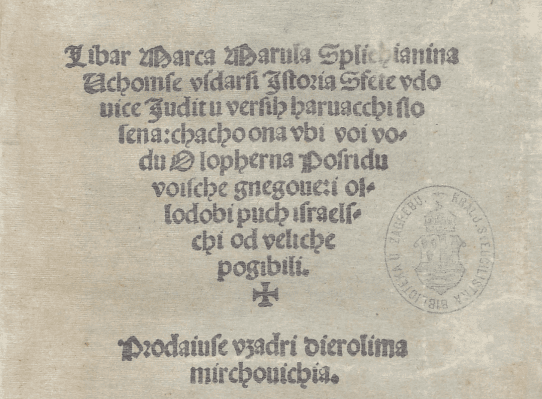 Libar Marca Marula Splichianina
Uchomse vsdarsi Istoria Sfete vdo
uice Judit u versih haruacchi slo
sena: chacho ona vbi voi vo-
du Olopherna Posridu
voische gnegoue: i ol-
lodobi puch israels-
chi od veliche
pogibili.
Prodaiuse vzadri dierolima
mirchouichia.